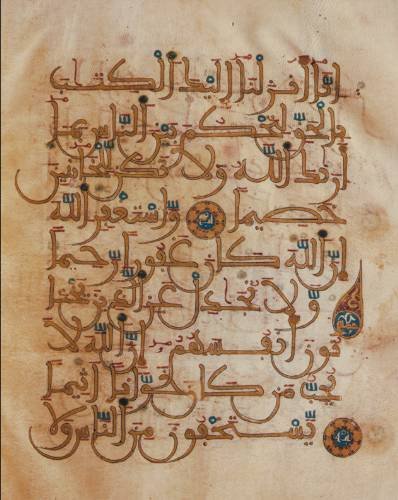 إنا أنزلنا إليك الكتب
بالحق لتحكم بين الناس بما
أريك الله ولا تكن للخائنين
خصيما واستغفر الله
إن الله كان غفورا رحيما
ولا تجدل عن الذين يختا
نون أنفسهم إن الله لا
يحب من كان خوانا أثيما
يستخفون من الناس ولا